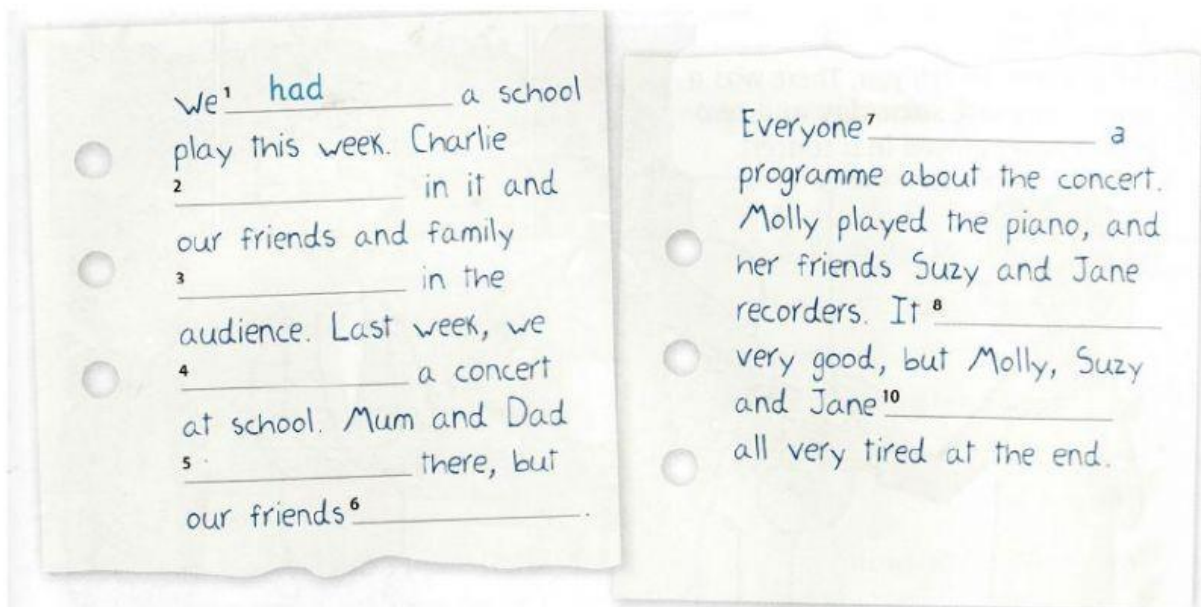 We 1 had a school
play this week. Charlie
2 in it and
our friends and family
3 in the
audience. Last week, we
4 a concert
at school. Mum and Dad
5 there, but
our friends 6 .
Everyone 7 a
programme about the concert.
Molly played the piano, and
her friends Suzy and Jane
recorders. It 8
very good, but Molly, Suzy
and Jane 10
all very tired at the end.